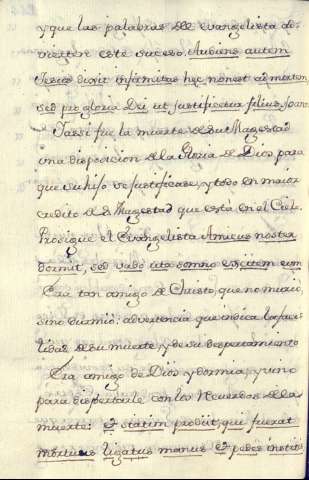 y que las palabras del evangelista de
este suceso. Audiens autem
Jesus dixit infirmitas hec non est ad mortem
sed pro gloria Dei ut justificetur filius, Joan
fue la muerte de su Magestad
una disposicion de la Gloria de Dios para
que su hijo se justificase, y todo en maior
credito de S. Magestad que está en el Cielo
Prosigue el Evangelista Amicus noster
dormit, sed vado uta somno excitem eum
Era tan amigo de Christo, que no murió
sino durmió: advertencia que indica las
de su muerte, y de su despertamiento
Era amigo de Dios y dormia, y vino
para dispertarle con los de la
muerte: et statim prodiit, qui fuerat
mortuus ligatus manus et pedes institis